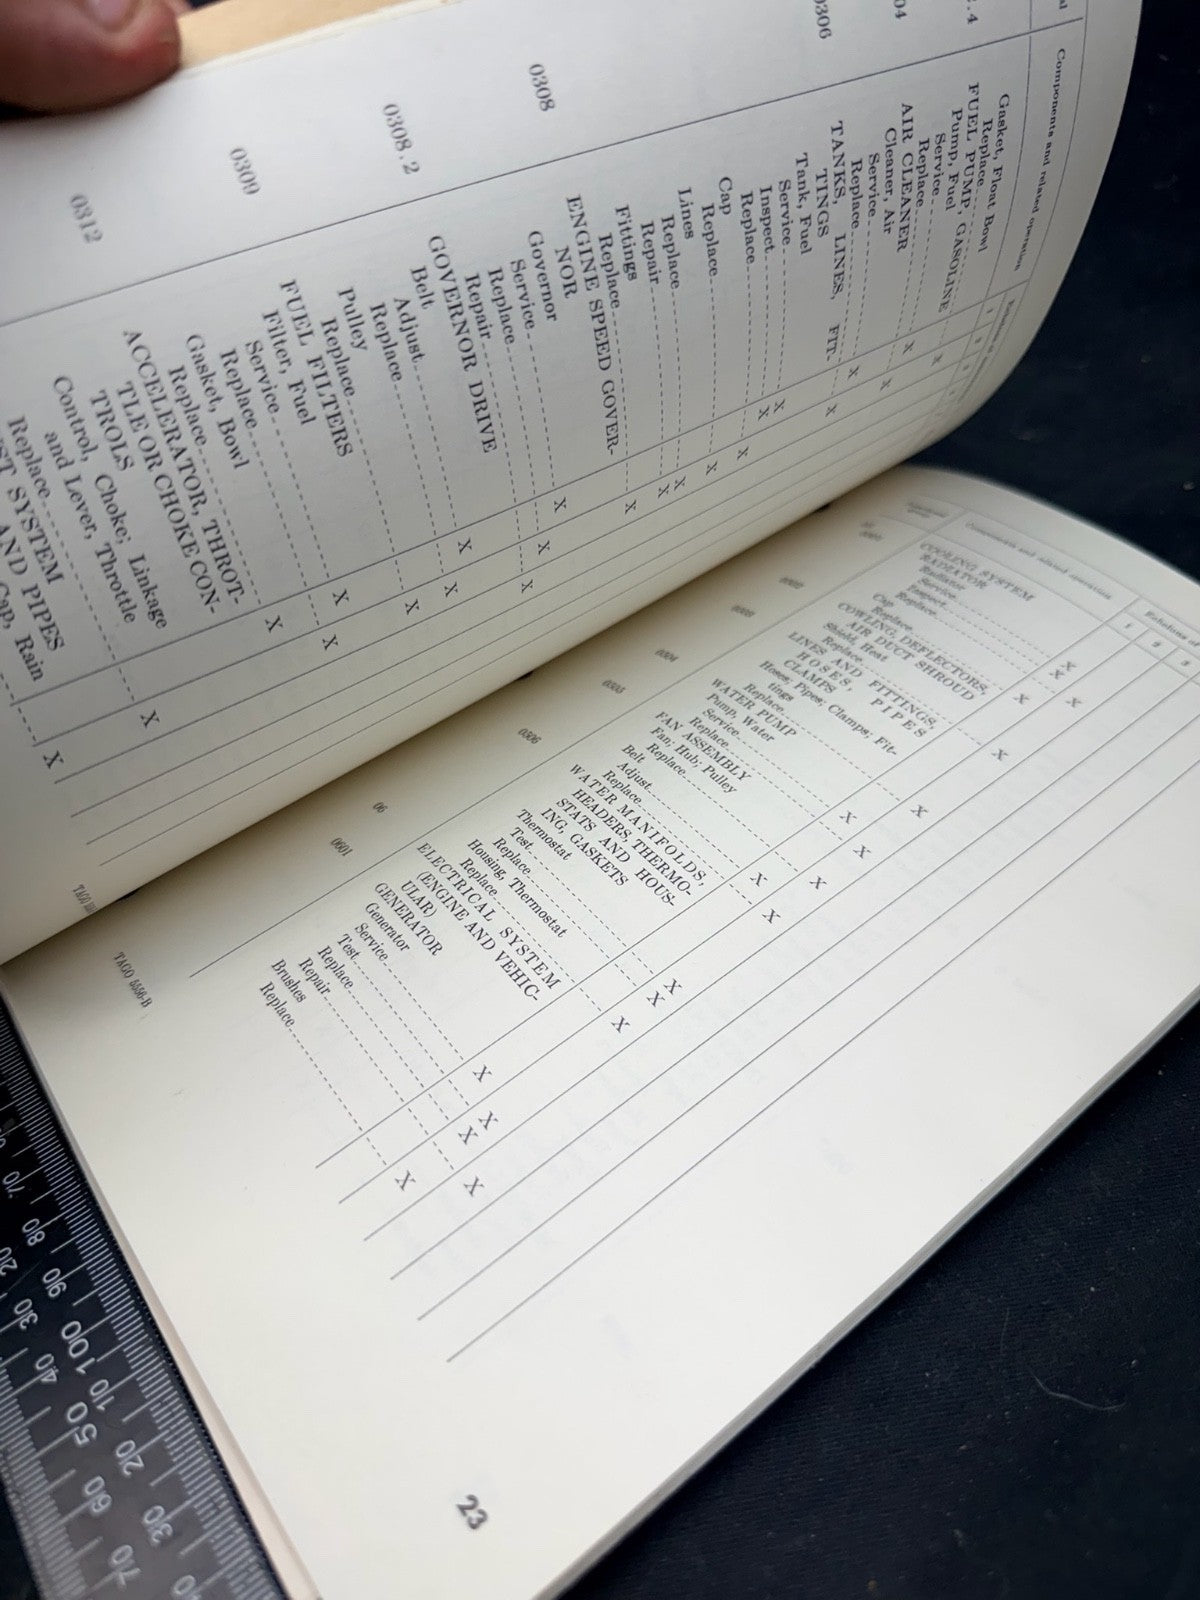 Components and related operation
.4
Gasket, Float Bowl
Replace
FUEL PUMP, GASOLINE
Pump, Fuel
Service
Replace
04
AIR CLEANER
Cleaner, Air
Service
Replace
0306
TANKS, LINES, FIT-
TINGS
Tank, Fuel
Service
Inspect
Replace
Cap
Replace
Lines
Replace
Repair
Fittings
Replace
0308
ENGINE SPEED GOVER-
NOR
Governor
Service
Replace
Repair
0308.2
GOVERNOR DRIVE
Belt
Adjust
Replace
Pulley
Replace
0309
FUEL FILTERS
Filter, Fuel
Service
Replace
Gasket, Bowl
Replace
0312
ACCELERATOR, THROT-
TLE OR CHOKE CON-
TROLS
Control, Choke; Linkage
and Lever, Throttle
Replace
ST SYSTEM
AND PIPES
Cap, Rain
TAGO
Components and related operation
Echelons of
1 2 3
COOLING SYSTEM
RADIATOR
Radiator
Service
Inspect
Replace
Cap
Replace
0302
COWLING, DEFLECTORS,
AIR DUCT SHROUD
Shield, Heat
Replace
0303
LINES AND FITTINGS,
HOSES, PIPES
CLAMPS
Hoses; Pipes; Clamps; Fit-
tings
Replace
0304
WATER PUMP
Pump, Water
Service
Replace
0305
FAN ASSEMBLY
Fan; Hub; Pulley
Replace
Belt
Adjust
Replace
0306
WATER MANIFOLDS,
HEADERS, THERMO-
STATS AND HOUS-
ING, GASKETS
Thermostat
Test
Replace
Housing, Thermostat
Replace
06
ELECTRICAL SYSTEM
(ENGINE AND VEHIC-
ULAR)
0601
GENERATOR
Generator
Service
Test
Replace
Repair
Brushes
Replace
TAGO 5556-B
23
70 80 90 100 10 20 30
20 30 40 50 60 70